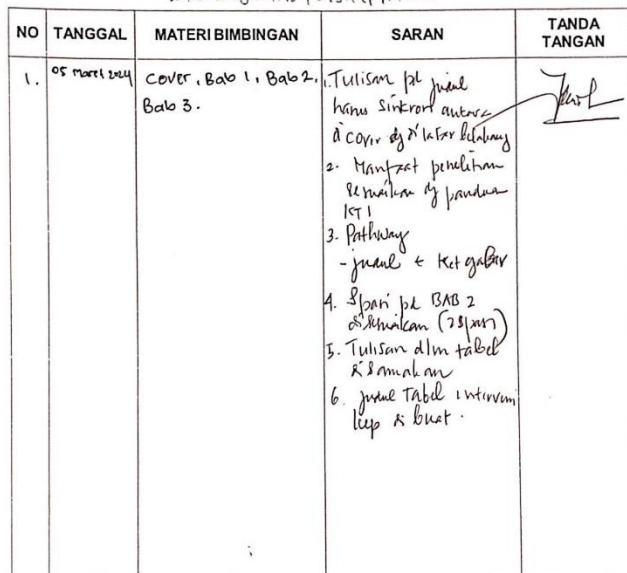 NO TANGGAL MATERI BIMBINGAN SARAN TANDA TANGAN
1. 05 Maret 2024 Cover, Bab 1, Bab 2,
Bab 3.
1. Tulisan pd judul
harus sinkron antara
di cover dg di latar belakang
2. Manfaat penelitian
sesuaikan dg panduan
KTI
3. Pathway
- judul & ket gabar
4. Spasi pd BAB 2
disesuaikan (2 spasi)
5. Tulisan dlm tabel
disamakan
6. judul Tabel intervensi
kep di buat.